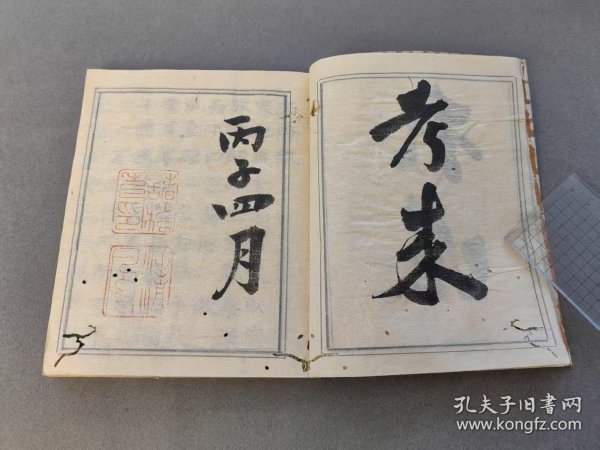 考来
丙子四月
孔夫子旧书网
www.kongfz.com